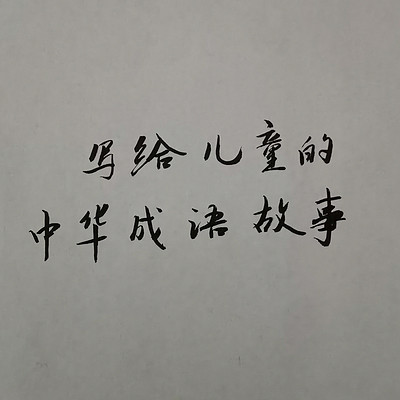 写给儿童的
中华成语故事